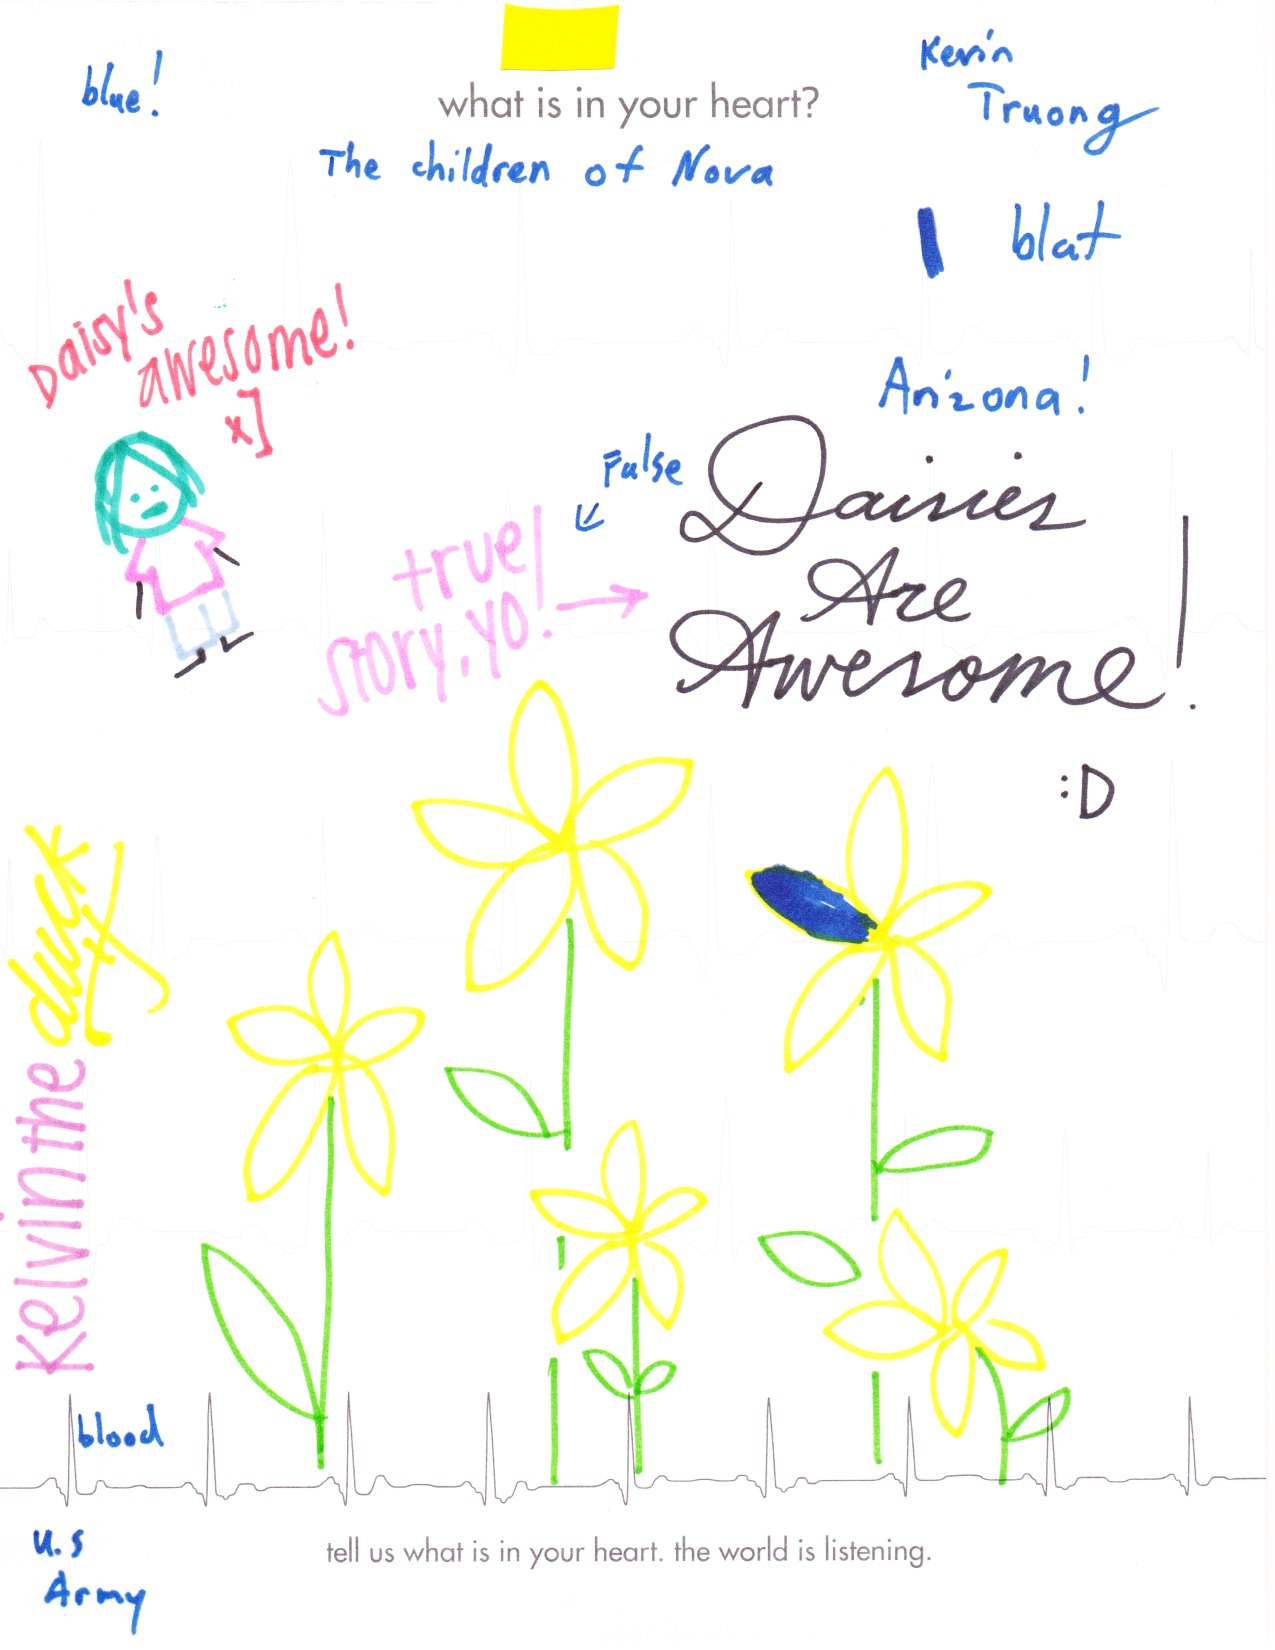 blue!
what is in your heart?
Kevin
Truong
The children of Nova
blat
Daisy's
awesome!
x]
Arizona!
False
Daisies
Are
Awesome!
true
story, yo!
:D
Kelvin the duck
blood
U.S
Army
tell us what is in your heart. the world is listening.